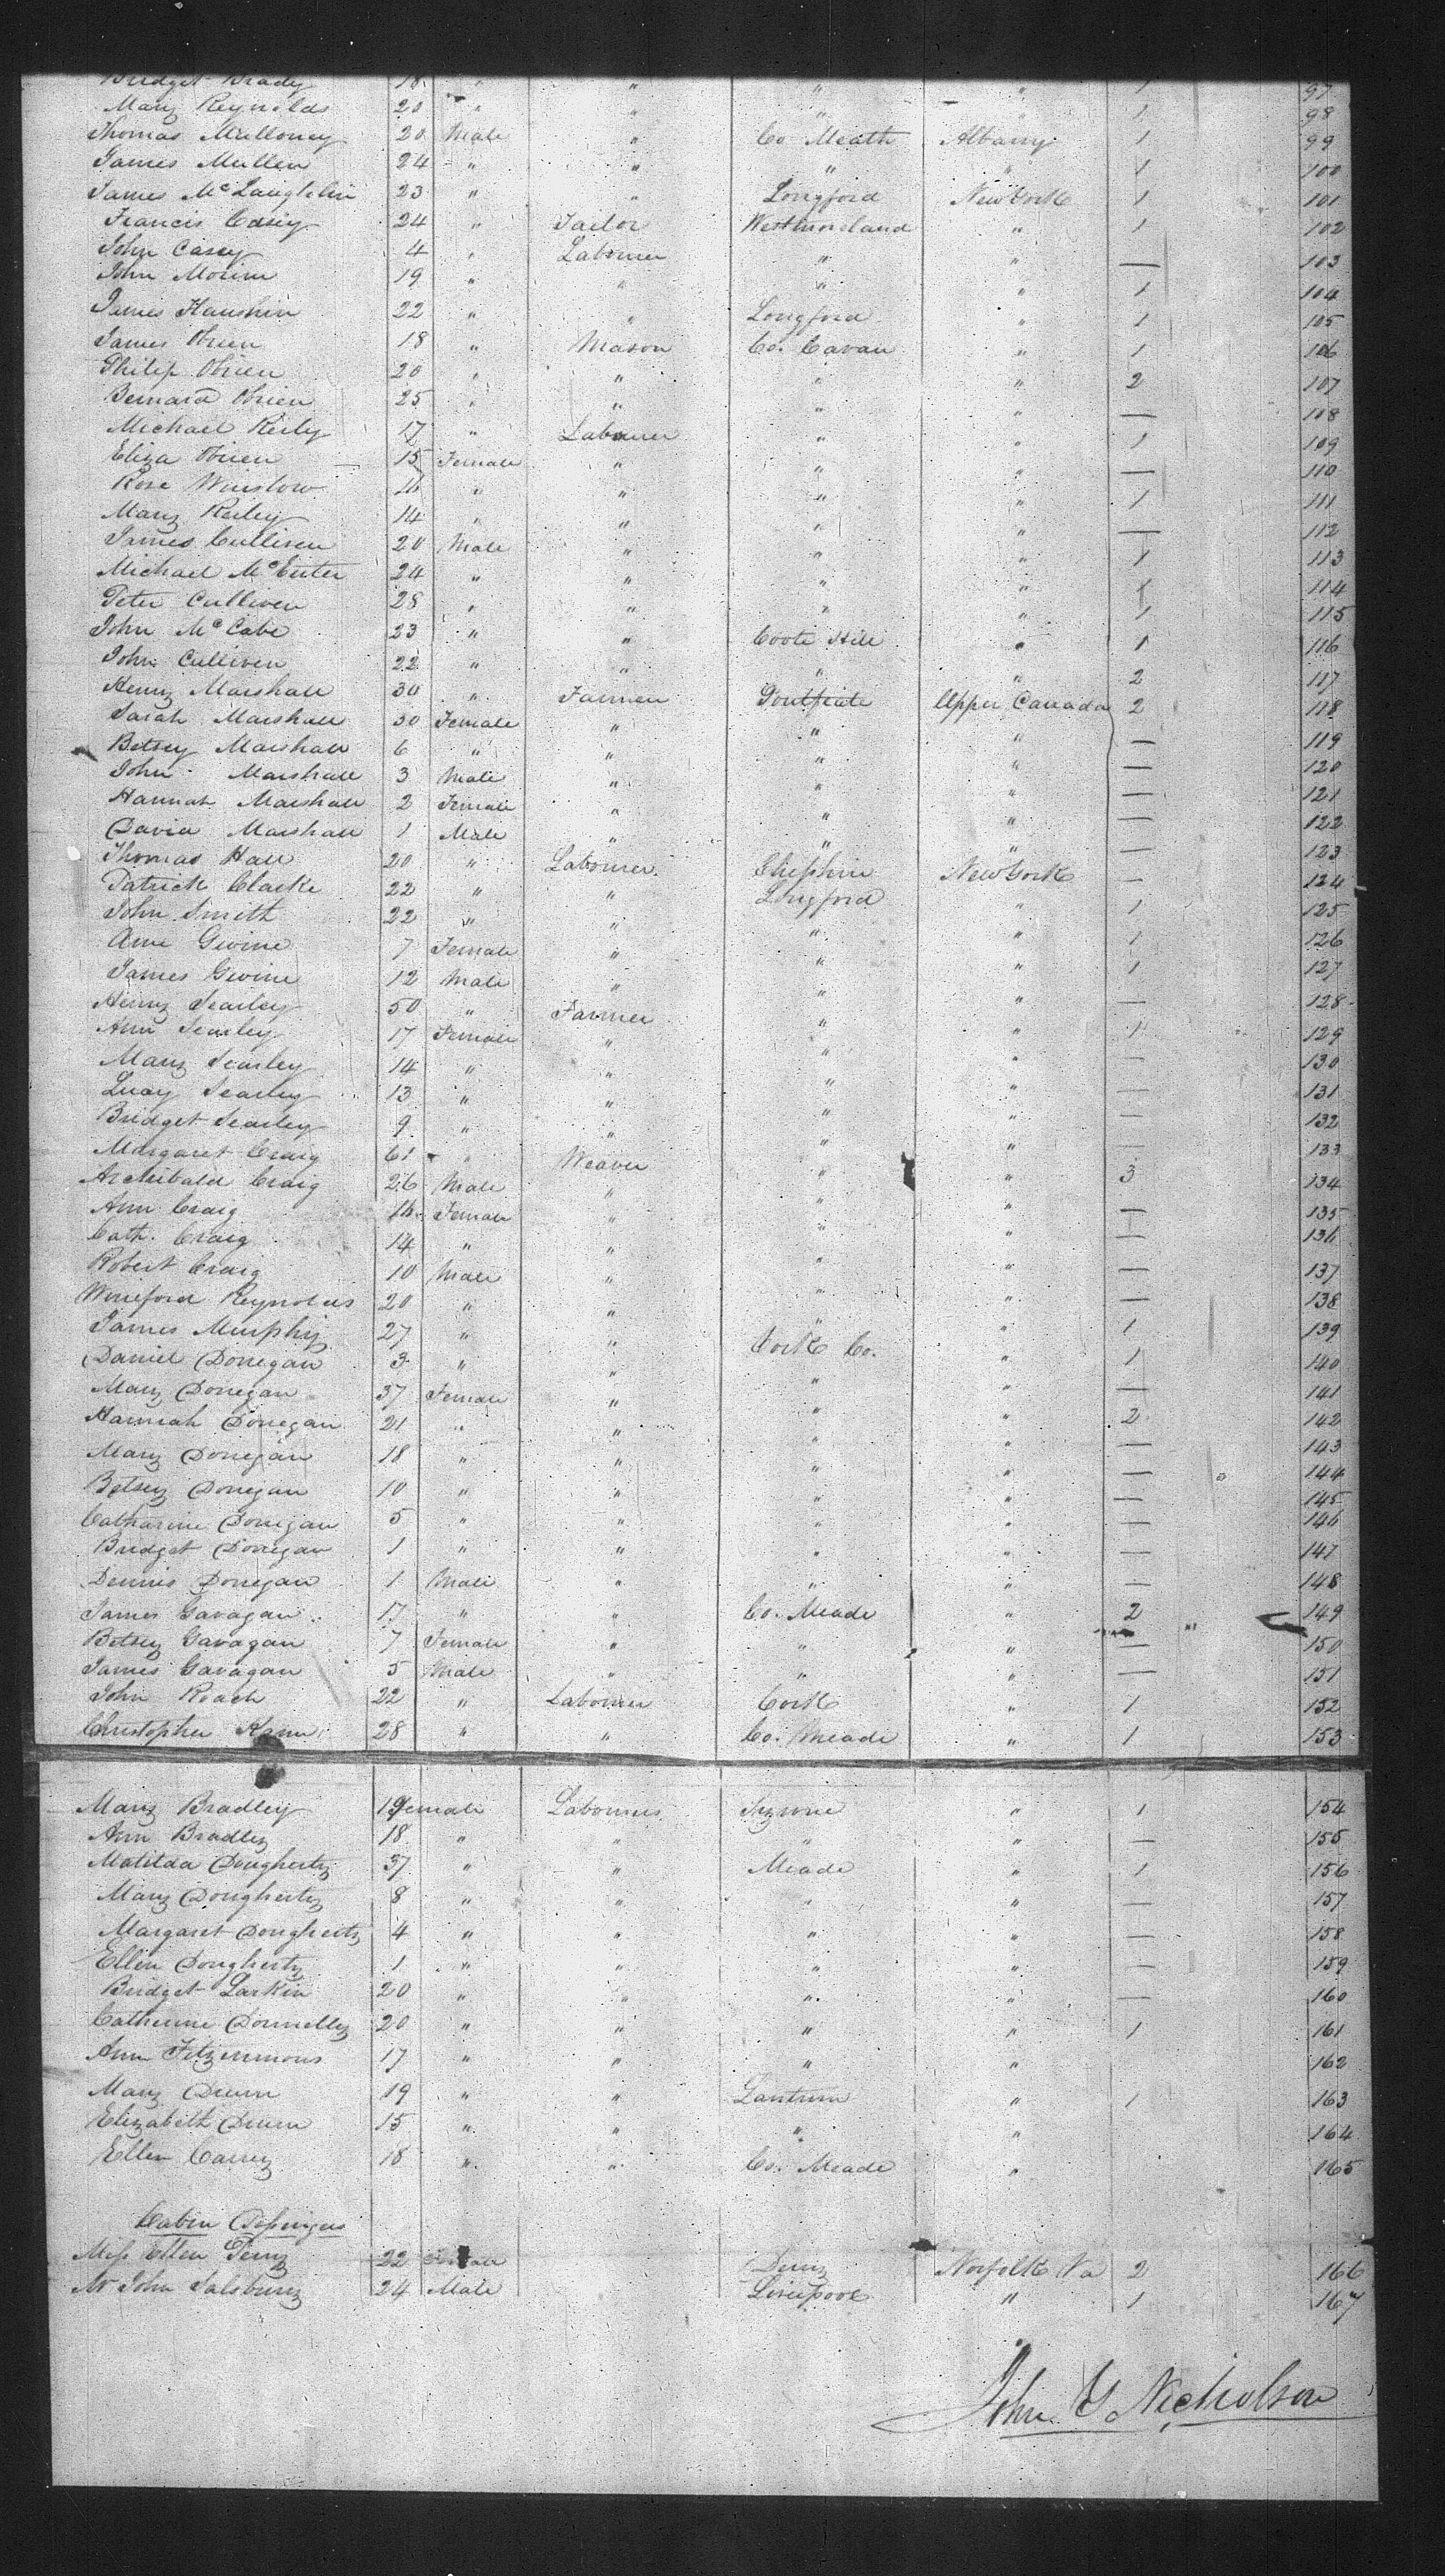 Bridget Brady 18 " " " " 1 97
Mary Reynolds 20 " " " " 1 98
Thomas Mulloney 20 Male " Co Meath Albany 1 99
James Mullen 24 " " " " 1 100
James McLaughlin 23 " " Longford New York 1 101
Francis Casey 24 " Tailor Westmoreland " 1 102
John Casey 4 " Labourer " " — 103
John 19 " " " " 1 104
James 22 " " Longford " 1 105
James Obrien 18 " Mason Co. Cavan " 1 106
Philip Obrien 20 " " " " 2 107
Bernard Obrien 25 " " " " — 108
Michael Reily 17 " Labourer " " 1 109
Eliza Obrien 15 Female " " " — 110
Rose Winslow 16 " " " " 1 111
Mary Reiley 14 " " " " — 112
James Culliven 20 Male " " " 1 113
Michael McEnter 24 " " " " 1 114
Peter Culliven 28 " " " " 1 115
John McCabe 23 " " Coote Hill " 1 116
John Culliven 22 " " " " 2 117
Henry Marshall 30 " Farmer Upper Canada 2 118
Sarah Marshall 30 Female " " " — 119
Betsey Marshall 6 " " " " — 120
John Marshall 3 Male " " " — 121
Hannah Marshall 2 Female " " " — 122
David Marshall 1 Male " " " — 123
Thomas Hall 20 " Labourer New York — 124
Patrick Clarke 22 " " Longford " 1 125
John Smith 22 " " " " 1 126
Ann 7 Female " " " 1 127
James 12 Male " " " — 128
Henry Searley 50 " Farmer " " 1 129
Ann Searley 17 Female " " " — 130
Mary Searley 14 " " " " — 131
Lucy Searley 13 " " " " — 132
Bridget Searley 9 " " " " — 133
Margaret Craig 61 " Weaver " " 3 134
Archibald Craig 26 Male " " " — 135
Ann Craig 16 Female " " " — 136
Cath. Craig 14 " " " " — 137
Robert Craig 10 Male " " " — 138
Wineford Reynolds 20 " " " " 1 139
James Murphy 27 " " Cork Co. " 1 140
Daniel Donegan 3 " " " " — 141
Mary Donegan 37 Female " " " 2 142
Hannah Donegan 21 " " " " — 143
Mary Donegan 18 " " " " — 144
Betsey Donegan 10 " " " " — 145
Catharine Donegan 5 " " " " — 146
Bridget Donegan 1 " " " " — 147
Dennis Donegan 1 Male " " " — 148
James Gavagan 17 " " Co. Meade " 2 " 149
Betsey Gavagan 7 Female " " " — 150
James Gavagan 5 Male " " " — 151
John Roach 22 " Labourer Cork " 1 152
Christopher 28 " " Co. Meade " 1 153
Mary Bradley 19 Female Labourers Tyrone " 1 154
Ann Bradley 18 " " " " — 155
Matilda Dougherty 37 " " Meade " 1 156
Mary Dougherty 8 " " " " — 157
Margaret Dougherty 4 " " " " — 158
Ellen Dougherty 1 " " " " — 159
Bridget Larkin 20 " " " " — 160
Catherine Donnelly 20 " " " " 1 161
Ann Fitzimmons 17 " " " " 162
Mary Drum 19 " " " 1 163
Elizabeth Drum 15 " " " " 164
Ellen Carrey 18 " " Co. Meade " 165
Cabin Passengers
Miss Ellen Perry 22 Female Derry Norfolk Va 2 166
Mr John Salsbury 24 Male Liverpool " 1 167
John Y. Nicholson